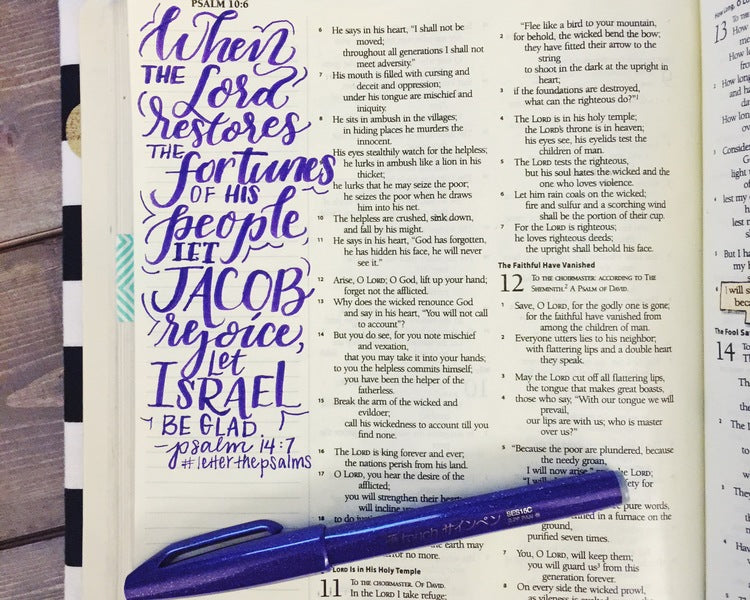 PSALM 10:6
When
THE Lord
restores
THE fortunes
OF HIS
people
LET
JACOB
rejoice,
let
ISRAEL
BE GLAD
-psalm 14:7
#letterthepsalms
6 He says in his heart, "I shall not be
moved;
throughout all generations I shall not
meet adversity."
7 His mouth is filled with cursing and
deceit and oppression;
under his tongue are mischief and
iniquity.
8 He sits in ambush in the villages;
in hiding places he murders the
innocent.
His eyes stealthily watch for the helpless;
he lurks in ambush like a lion in his
thicket;
he lurks that he may seize the poor;
he seizes the poor when he draws
him into his net.
10 The helpless are crushed, sink down,
and fall by his might.
11 He says in his heart, "God has forgotten,
he has hidden his face, he will never
see it."
12 Arise, O LORD; O God, lift up your hand;
forget not the afflicted.
13 Why does the wicked renounce God
and say in his heart, "You will not call
to account"?
14 But you do see, for you note mischief
and vexation,
that you may take it into your hands;
to you the helpless commits himself;
you have been the helper of the
fatherless.
15 Break the arm of the wicked and
evildoer;
call his wickedness to account till you
find none.
16 The LORD is king forever and ever;
the nations perish from his land.
17 O LORD, you hear the desire of the
afflicted;
you will strengthen their heart
you will incline
18 to do
earth may
for no more.
LORD Is in His Holy Temple
11 TO THE CHOIRMASTER. OF DAVID.
In the LORD I take refuge;
"Flee like a bird to your mountain,
2 for behold, the wicked bend the bow;
they have fitted their arrow to the
string
to shoot in the dark at the upright in
heart;
3 if the foundations are destroyed,
what can the righteous do?"
4 The LORD is in his holy temple;
the LORD's throne is in heaven;
his eyes see, his eyelids test the
children of man.
5 The LORD tests the righteous,
but his soul hates the wicked and the
one who loves violence.
6 Let him rain coals on the wicked;
fire and sulfur and a scorching wind
shall be the portion of their cup.
7 For the LORD is righteous;
he loves righteous deeds;
the upright shall behold his face.
The Faithful Have Vanished
12 TO THE CHOIRMASTER: ACCORDING TO THE
SHEMINITH. A PSALM OF DAVID.
1 Save, O LORD, for the godly one is gone;
for the faithful have vanished from
among the children of man.
2 Everyone utters lies to his neighbor;
with flattering lips and a double heart
they speak.
3 May the LORD cut off all flattering lips,
the tongue that makes great boasts,
4 those who say, "With our tongue we will
prevail,
our lips are with us; who is master
over us?"
5 "Because the poor are plundered, because
the needy groan,
I will now arise," the LORD;
for
pure words,
in a furnace on the
ground,
purified seven times.
7 You, O LORD, will keep them;
you will guard us from this
generation forever.
8 On every side the wicked prowl,
as vileness is exalted
touch サインペン SES15C
JAPAN
13
How
2
3
light
4 lest my
lest
5 But I
6 I will s
The Fool Sa
14